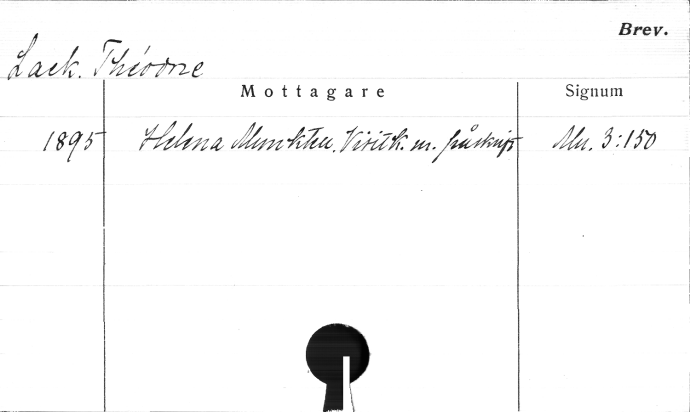 Brev.
Lack. Théodore
Mottagare Signum
1895 Helena Munktell. Visitk. m. påskrift Mu. 3:150